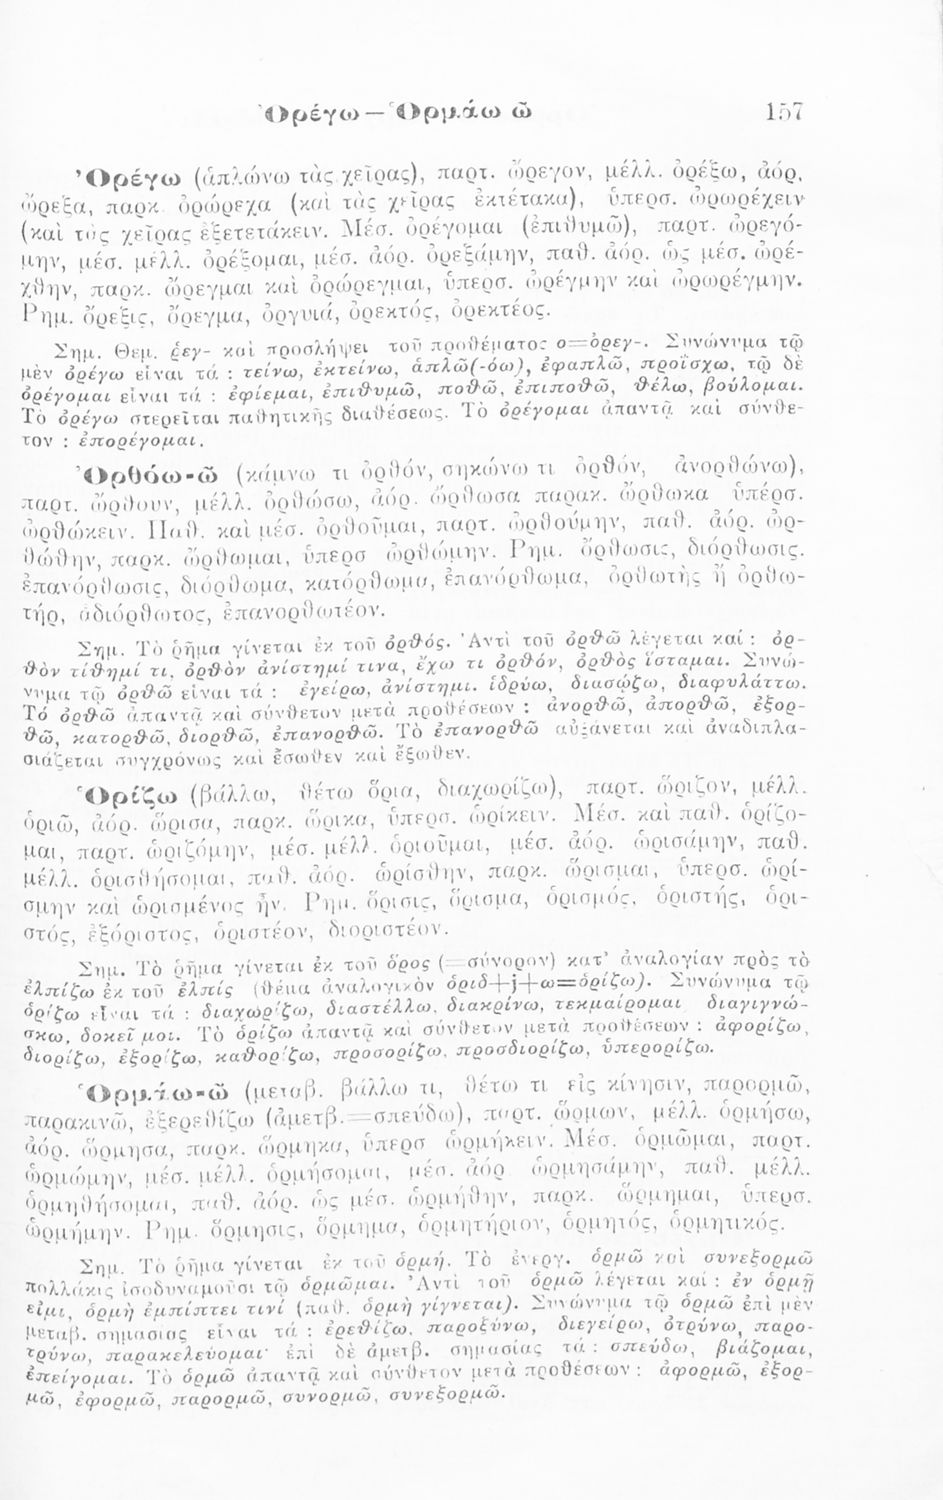 Ὀρέγω — Ὁρμάω ῶ 157
Ὀρέγω (ἁπλώνω τὰς χεῖρας), παρτ. ὤρεγον, μέλλ. ὀρέξω, ἀόρ.
ὤρεξα, παρκ. ὀρώρεχα (καὶ τὰς χεῖρας ἐκτέτακα), ὑπερσ. ὠρωρέχειν
(καὶ τὰς χεῖρας ἐξετετάκειν. Μέσ. ὀρέγομαι (ἐπιθυμῶ), παρτ. ὠρεγό-
μην, μέσ. μέλλ. ὀρέξομαι, μέσ. ἀόρ. ὀρεξάμην, παθ. ἀόρ. ὡς μέσ. ὠρέ-
χθην, παρκ. ὤρεγμαι καὶ ὀρώρεγμαι, ὑπερσ. ὠρέγμην καὶ ὠρωρέγμην.
Ρημ. ὄρεξις, ὄρεγμα, ὀργυιά, ὀρεκτός, ὀρεκτέος.
Σημ. Θεμ. ρεγ- καὶ προσλήψει τοῦ προθέματος ο=ὀρεγ-. Συνώνυμα τῷ
μὲν ὀρέγω εἶναι τά : τείνω, ἐκτείνω, ἁπλῶ(-όω), ἐφαπλῶ, προΐσχω, τῷ δὲ
ὀρέγομαι εἶναι τά : ἐφίεμαι, ἐπιθυμῶ, ποθῶ, ἐπιποθῶ, θέλω, βούλομαι.
Τὸ ὀρέγω στερεῖται παθητικῆς διαθέσεως. Τὸ ὀρέγομαι ἀπαντᾷ καὶ σύνθε-
τον : ἐπορέγομαι.
Ὀρθόω-ῶ (κάμνω τι ὀρθόν, σηκώνω τι ὀρθόν, ἀνορθώνω),
παρτ. ὤρθουν, μέλλ. ὀρθώσω, ἀόρ. ὤρθωσα παρακ. ὤρθωκα ὑπέρσ.
ὠρθώκειν. Παθ. καὶ μέσ. ὀρθοῦμαι, παρτ. ὠρθούμην, παθ. ἀόρ. ὠρ-
θώθην, παρκ. ὤρθωμαι, ὑπερσ ὠρθώμην. Ρημ. ὄρθωσις, διόρθωσις.
ἐπανόρθωσις, διόρθωμα, κατόρθωμα, ἐπανόρθωμα, ὀρθωτὴς ἢ ὀρθω-
τήρ, ἀδιόρθωτος, ἐπανορθωτέον.
Σημ. Τὸ ῥῆμα γίνεται ἐκ τοῦ ὀρθός. Ἀντὶ τοῦ ὀρθῶ λέγεται καί : ὀρ-
θὸν τίθημί τι, ὀρθὸν ἀνίστημί τινα, ἔχω τι ὀρθόν, ὀρθὸς ἵσταμαι. Συνώ-
νυμα τῷ ὀρθῶ εἶναι τά : ἐγείρω, ἀνίστημι. ἱδρύω, διασῴζω, διαφυλάττω.
Τό ὀρθῶ ἀπαντᾷ καὶ σύνθετον μετὰ προθέσεων : ἀνορθῶ, ἀπορθῶ, ἐξορ-
θῶ, κατορθῶ, διορθῶ, ἐπανορθῶ. Τὸ ἐπανορθῶ αὐξάνεται καὶ ἀναδιπλα-
σιάζεται συγχρόνως καὶ ἔσωθεν καὶ ἔξωθεν.
Ὁρίζω (βάλλω, θέτω ὅρια, διαχωρίζω), παρτ. ὥριζον, μέλλ.
ὁριῶ, ἀόρ. ὥρισα, παρκ. ὥρικα, ὑπερσ. ὡρίκειν. Μέσ. καὶ παθ. ὁρίζο-
μαι, παρτ. ὡριζόμην, μέσ. μέλλ. ὁριοῦμαι, μέσ. ἀόρ. ὡρισάμην, παθ.
μέλλ. ὁρισθήσομαι, παθ. ἀόρ. ὡρίσθην, παρκ. ὥρισμαι, ὑπερσ. ὡρί-
σμην καὶ ὡρισμένος ἦν. Ρημ. ὅρισις, ὅρισμα, ὁρισμός, ὁριστής, ὁρι-
στός, ἐξόριστος, ὁριστέον, διοριστέον.
Σημ. Τὸ ῥῆμα γίνεται ἐκ τοῦ ὅρος (=σύνορον) κατ' ἀναλογίαν πρὸς τὸ
ἐλπίζω ἐκ τοῦ ἐλπίς (θέμα ἀναλογικὸν ὁριδ+j+ω=ὁρίζω). Συνώνυμα τῷ
ὁρίζω εἶναι τά : διαχωρίζω, διαστέλλω, διακρίνω, τεκμαίρομαι διαγιγνώ-
σκω, δοκεῖ μοι. Τὸ ὁρίζω ἀπαντᾷ καὶ σύνθετον μετὰ προθέσεων : ἀφορίζω,
διορίζω, ἐξορίζω, καθορίζω, προσορίζω, προσδιορίζω, ὑπερορίζω.
Ὁρμάω-ῶ (μεταβ. βάλλω τι, θέτω τι εἰς κίνησιν, παρορμῶ,
παρακινῶ, ἐξερεθίζω (ἀμετβ.=σπεύδω), παρτ. ὥρμων, μέλλ. ὁρμήσω,
ἀόρ. ὥρμησα, παρκ. ὥρμηκα, ὑπερσ ὡρμήκειν. Μέσ. ὁρμῶμαι, παρτ.
ὡρμώμην, μέσ. μέλλ. ὁρμήσομαι, μέσ. ἀόρ ὡρμησάμην, παθ. μέλλ.
ὁρμηθήσομαι, παθ. ἀόρ. ὡς μέσ. ὡρμήθην, παρκ. ὥρμημαι, ὑπερσ.
ὡρμήμην. Ρημ. ὅρμησις, ὅρμημα, ὁρμητήριον, ὁρμητός, ὁρμητικός.
Σημ. Τὸ ῥῆμα γίνεται ἐκ τοῦ ὁρμή. Τὸ ἐνεργ. ὁρμῶ καὶ συνεξορμῶ
πολλάκις ἰσοδυναμοῦσι τῷ ὁρμῶμαι. Ἀντὶ τοῦ ὁρμῶ λέγεται καί : ἐν ὁρμῇ
εἰμι, ὁρμὴ ἐμπίπτει τινί (παθ. ὁρμὴ γίγνεται). Συνώνυμα τῷ ὁρμῶ ἐπὶ μὲν
μεταβ. σημασίας εἶναι τά : ἐρεθίζω, παροξύνω, διεγείρω, ὀτρύνω, παρο-
τρύνω, παρακελεύομαι· ἐπὶ δὲ ἀμετβ. σημασίας τά : σπεύδω, βιάζομαι,
ἐπείγομαι. Τὸ ὁρμῶ ἀπαντᾷ καὶ σύνθετον μετὰ προθέσεων : ἀφορμῶ, ἐξορ-
μῶ, ἐφορμῶ, παρορμῶ, συνορμῶ, συνεξορμῶ.